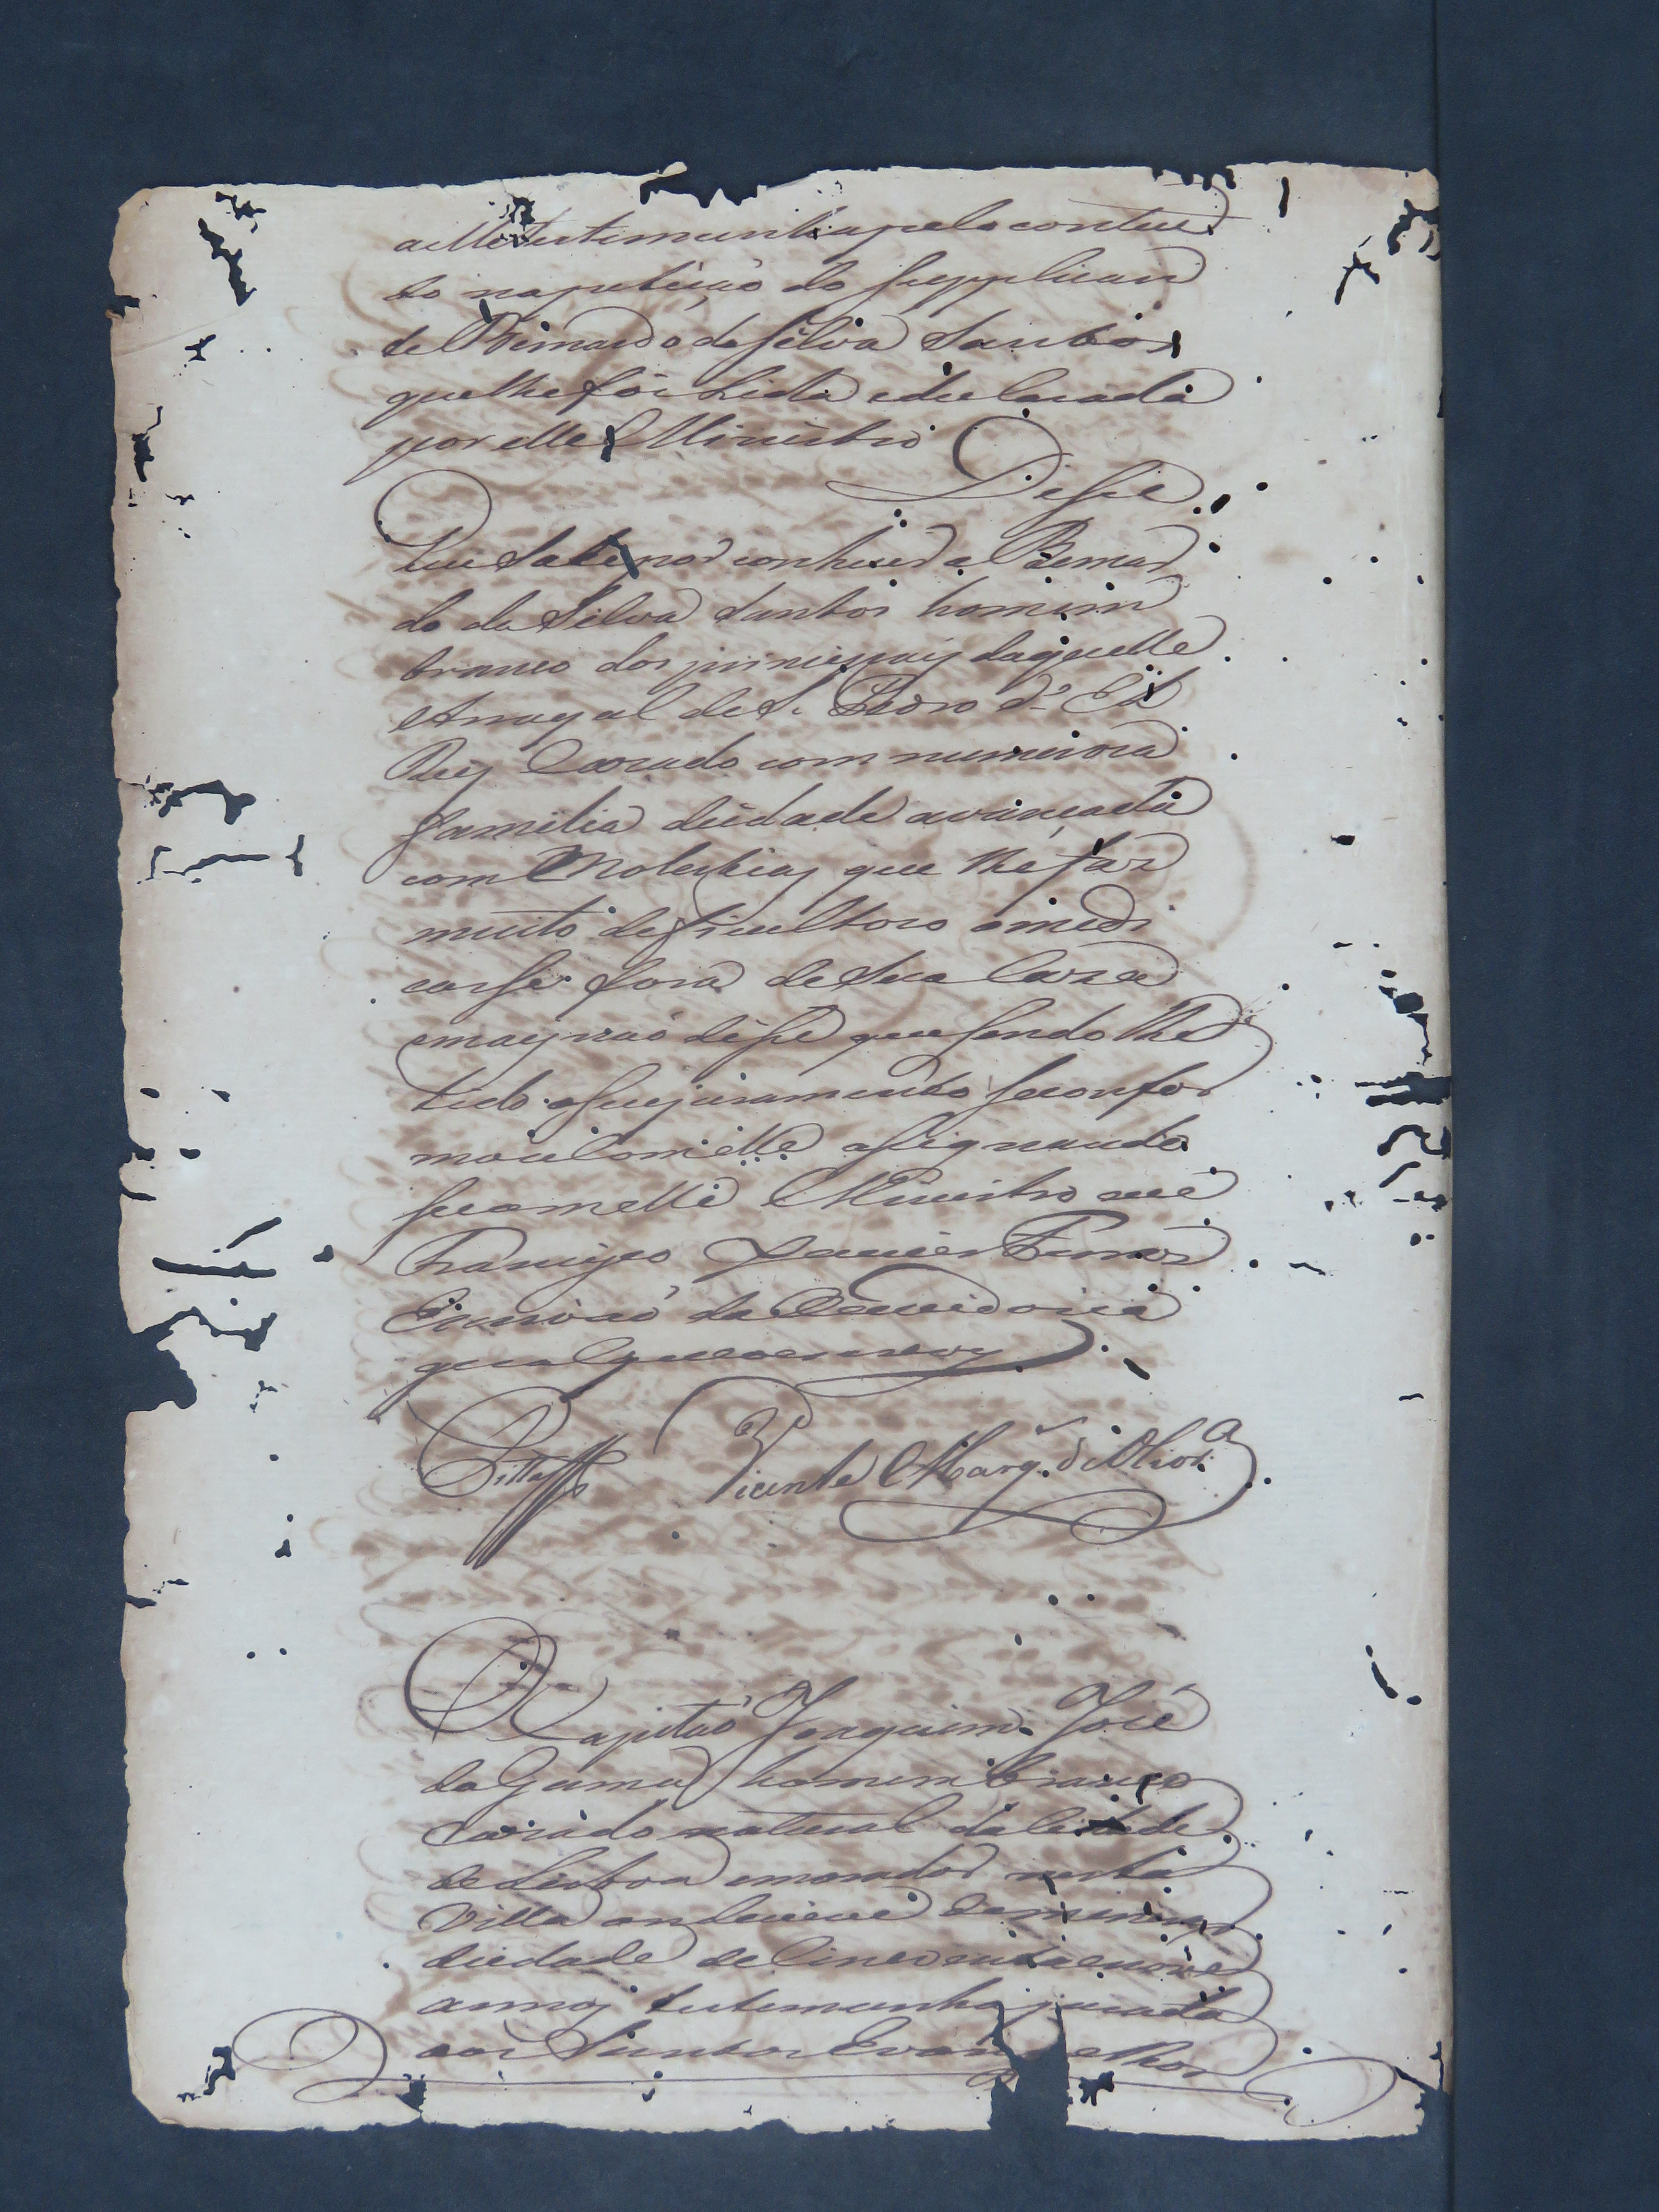 aelle testemunha pelo conteu
do napetiçaõ do Supplican
te Bernardo da Silva Santos
que lhe foi Lida edeclarada
por elle Ministro
Disse
Que Sabe por conhecer a Bernar
do da Silva Santos homem
branco dos principais daquelle
Arrayal de S. Pedro d' El
Rey Cazado com numeroza
familia deidade avançada
com Molestias que lhe faz
muito deficultozo omedi
carse fora de Sua Caza
emais naõ disse que Sendo lhe
lido oSeujuramento Seconfor
mou com elle aSignando
Secomelle Ministro eu
Francisco Xavier
Escrivaõ da Ouvidoria
qual que oescrevy
Vicente Marq. d' Olivr.ª
O Capitaõ Joaquim José
da Gama homem branco
Cazado natural da Cidade
de Lisboa emorador nesta
Villa onde vive
deidade de Cincoenta enove
annos testemunha jurada
aos Santos Evangelhos